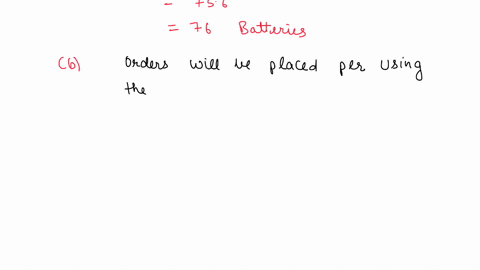 = 75.6
= 76 Batteries
(b) Orders will be placed per using
the